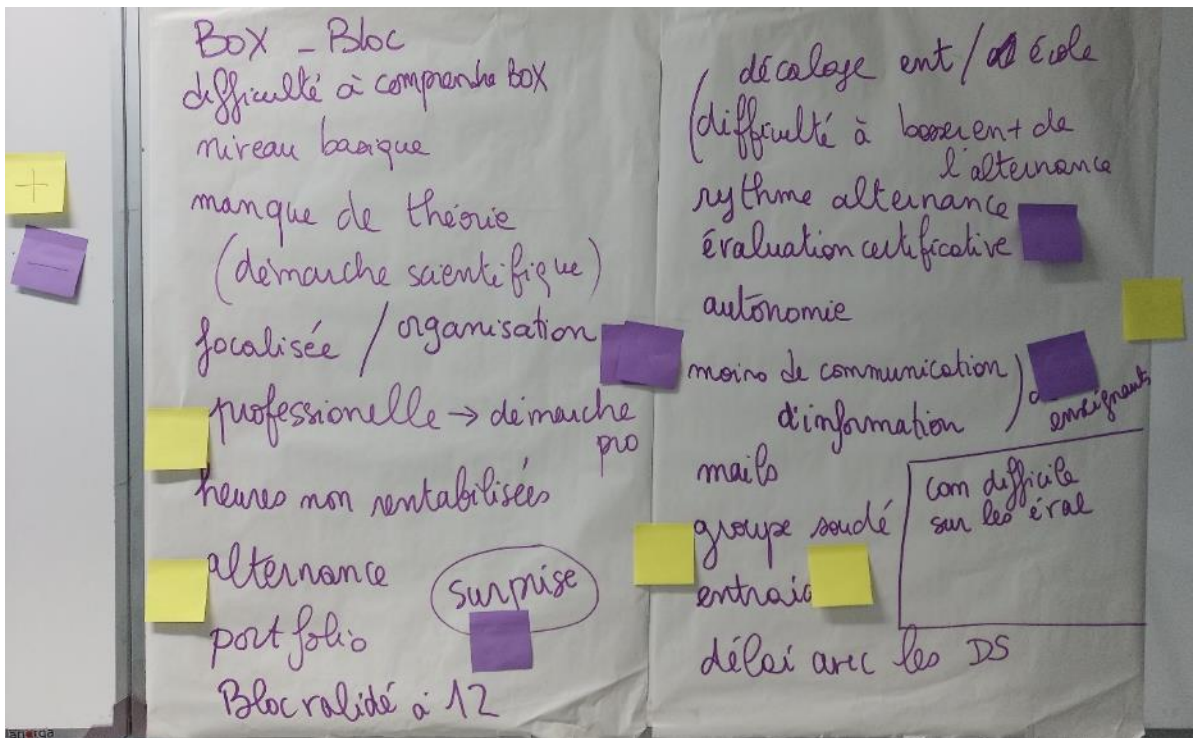 +
-
BOX - Bloc
difficulté à comprendre BOX
niveau basique
manque de théorie
(démarche scientifique)
focalisée / organisation
professionelle → démarche
pro
heures non rentabilisées
alternance
surprise
portfolio
Bloc validé à 12
décalage ent / école
(difficulté à
l'alternance
rythme alternance
évaluation certificative
autonomie
moins de communication )
d'information
enseignants
mails
com difficile
sur les éval
groupe soudé
entraid
délai avec les DS